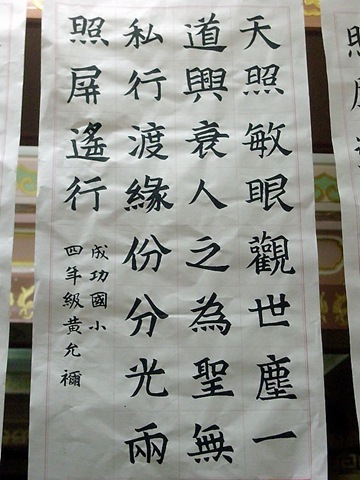 天照敏眠觀世塵一
道興衰人之為聖無
私行渡緣份分光兩
照屏遙行
成功國小
四年級黃允禰